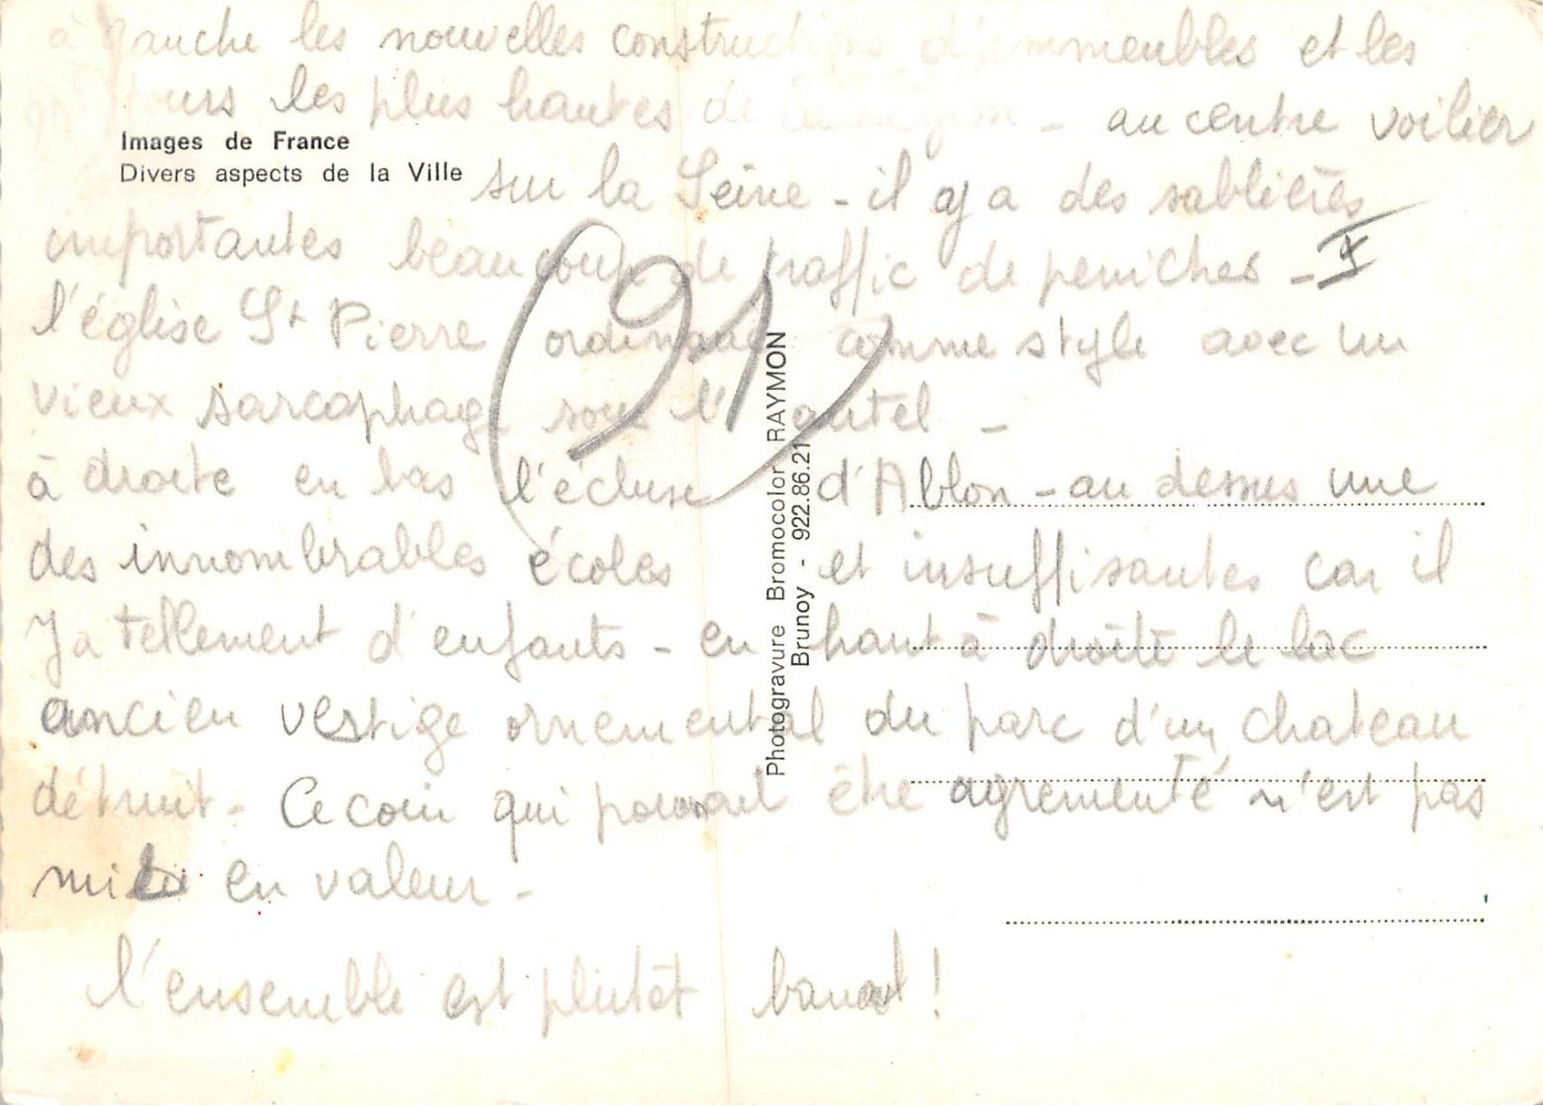 à gauche les nouvelles constructions d'immeubles et les
tours les plus hautes de la région - au centre voilier
Images de France
Divers aspects de la Ville
sur la Seine - il y a des sablières
importantes beaucoup de traffic de peniches -
l'église St Pierre ordinaire comme style avec un
vieux sarcophage sous l'autel -
à droite en bas l'écluse d'Ablon - au dessus une
des innombrables écoles et insuffisantes car il
y a tellement d'enfants - en haut à droite le lac
ancien vestige ornemental du parc d'un chateau
détruit - Ce coin qui pouvait être agrementé n'est pas
mis en valeur -
l'ensemble est plutôt banal !
(91)
Photogravure Bromocolor RAYMON
Brunoy - 922.86.21